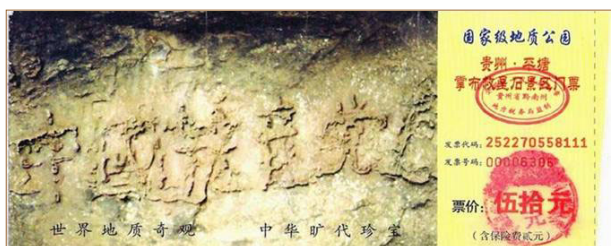 中國共产党
世界地质奇观 中华旷代珍宝
国家级地质公园
贵州·平塘
掌布
景区门票
贵州省黔南州
发票代码：252270558111
发票号码：00006306
票价：伍拾元
（含保险费贰元）